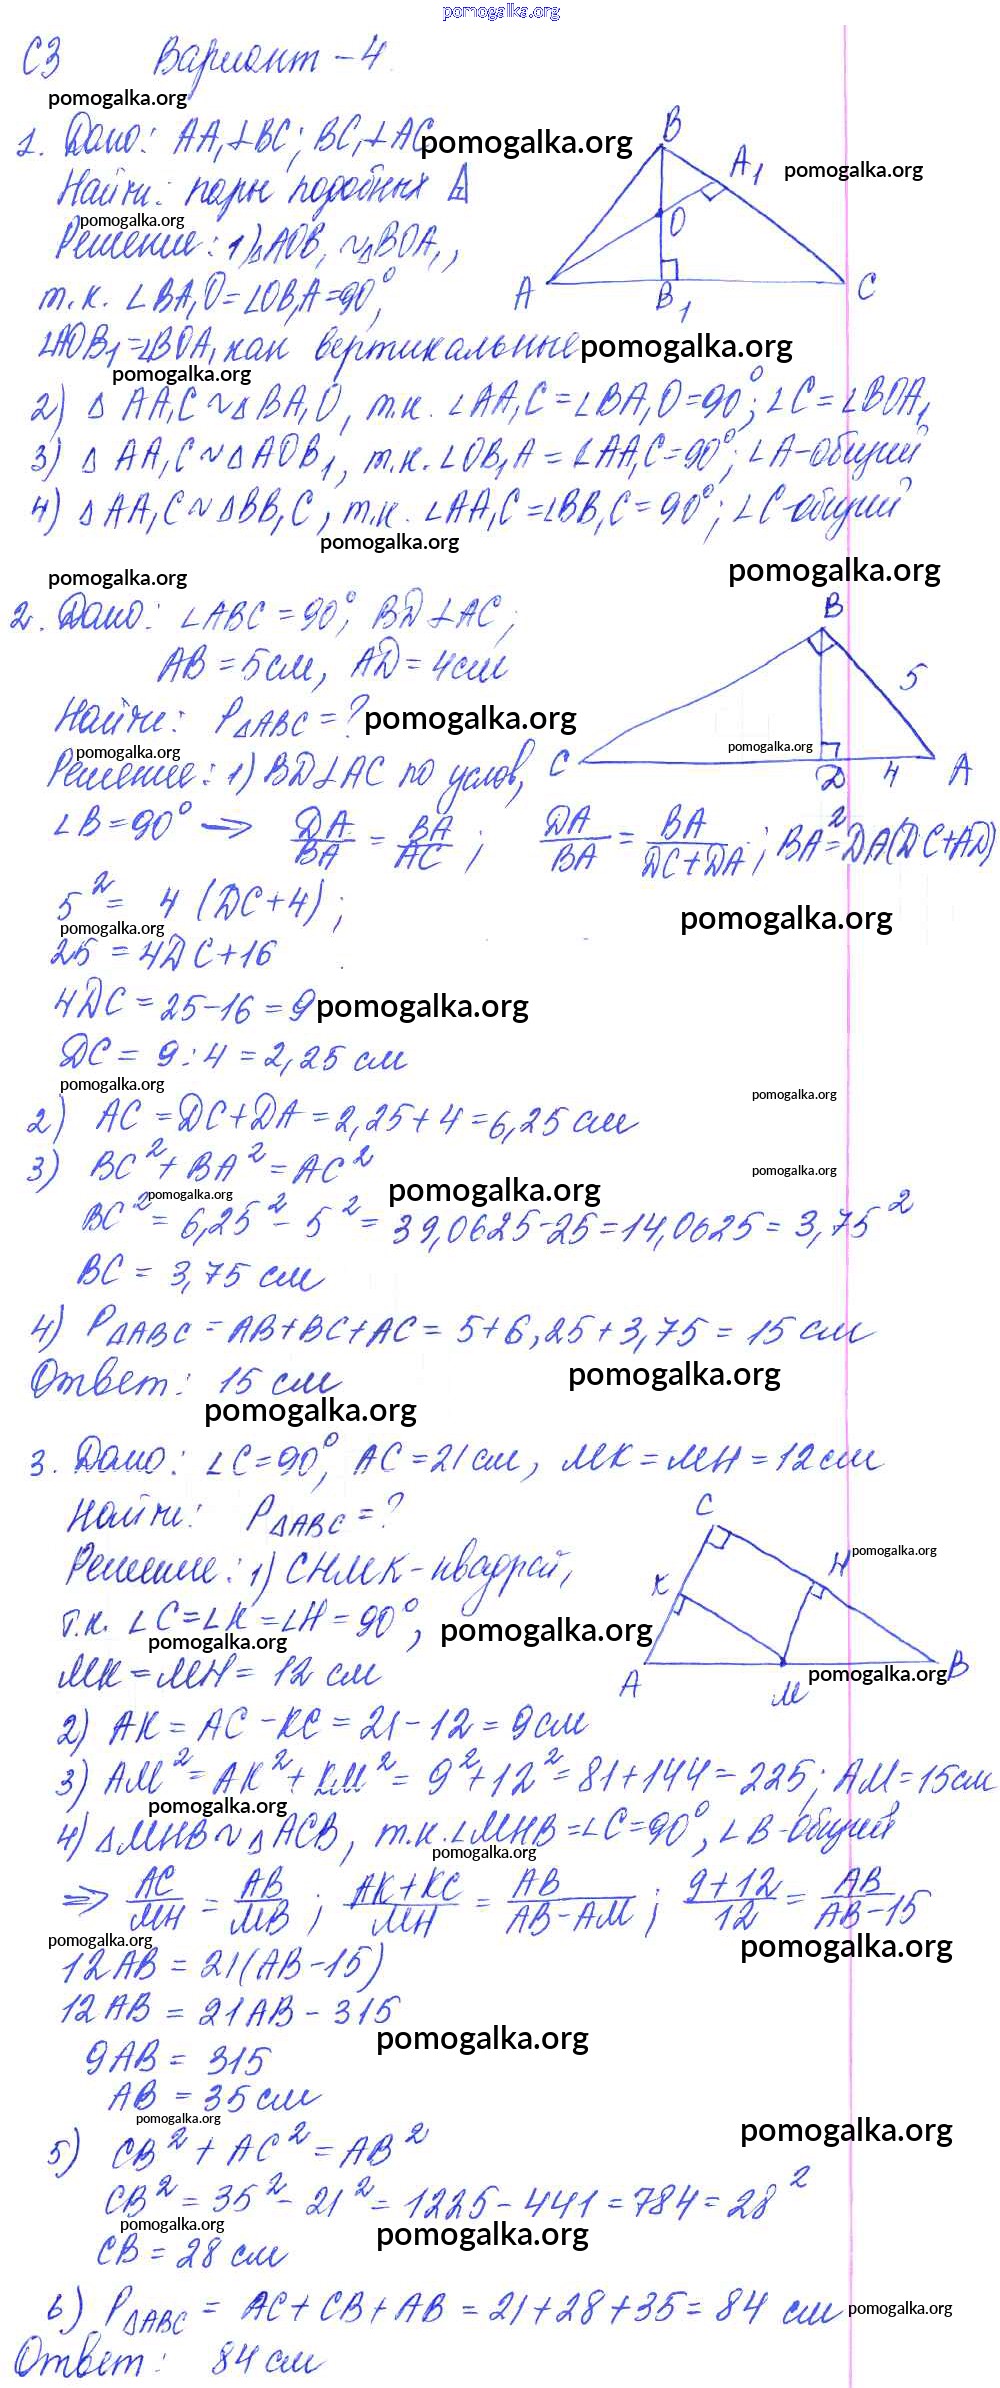 pomogalka.org
С3 Вариант - 4.
pomogalka.org
1. Дано: AA₁⊥BC; BC₁⊥AC pomogalka.org
B
A₁ pomogalka.org
Найти: пары подобных Δ
pomogalka.org
O
Решение: 1) ΔAOB₁ ∾ ΔBOA₁,
A B₁ C
т.к. ∠BA₁O = ∠OB₁A = 90°,
∠AOB₁ = ∠BOA₁ как вертикальные pomogalka.org
pomogalka.org
2) Δ AA₁C ∾ Δ BA₁O, т.к. ∠AA₁C = ∠BA₁O = 90°; ∠C = ∠BOA₁
3) Δ AA₁C ∾ Δ AOB₁, т.к. ∠OB₁A = ∠AA₁C = 90°; ∠A - общий
4) Δ AA₁C ∾ Δ BB₁C, т.к. ∠AA₁C = ∠BB₁C = 90°; ∠C - общий
pomogalka.org
pomogalka.org pomogalka.org
2. Дано: ∠ABC = 90°, BD ⊥ AC;
B
AB = 5 см, AD = 4 см
5
Найти: P ΔABC = ? pomogalka.org
pomogalka.org pomogalka.org
Решение: 1) BD ⊥ AC по услов,
C D 4 A
∠B = 90° => DA/BA = BA/AC; DA/BA = BA/(DC + DA); BA² = DA(DC + AD)
5² = 4 (DC + 4);
pomogalka.org pomogalka.org
25 = 4DC + 16
4DC = 25 - 16 = 9 pomogalka.org
DC = 9 : 4 = 2,25 см
pomogalka.org pomogalka.org
2) AC = DC + DA = 2,25 + 4 = 6,25 см
3) BC² + BA² = AC² pomogalka.org
pomogalka.org pomogalka.org
BC² = 6,25² - 5² = 39,0625 - 25 = 14,0625 = 3,75²
BC = 3,75 см
4) P ΔABC = AB + BC + AC = 5 + 6,25 + 3,75 = 15 см
Ответ: 15 см pomogalka.org
pomogalka.org
3. Дано: ∠C = 90°, AC = 21 см, MK = MH = 12 см
Найти: P ΔABC = ?
C
Решение: 1) CHMK - квадрат,
K H pomogalka.org
т.к. ∠C = ∠K = ∠H = 90°, pomogalka.org
pomogalka.org
MK = MH = 12 см
A M B pomogalka.org
2) AK = AC - KC = 21 - 12 = 9 см
3) AM² = AK² + KM² = 9² + 12² = 81 + 144 = 225; AM = 15 см
pomogalka.org
4) Δ MHB ∾ Δ ACB, т.к. ∠MHB = ∠C = 90°, ∠B - общий
pomogalka.org
=> AC/MH = AB/MB; (AK + KC)/MH = AB/(AB - AM); (9 + 12)/12 = AB/(AB - 15)
pomogalka.org pomogalka.org
12AB = 21(AB - 15)
12AB = 21AB - 315
pomogalka.org
9AB = 315
AB = 35 см
pomogalka.org pomogalka.org
5) CB² + AC² = AB²
CB² = 35² - 21² = 1225 - 441 = 784 = 28²
pomogalka.org pomogalka.org
CB = 28 см
6) P ΔABC = AC + CB + AB = 21 + 28 + 35 = 84 см pomogalka.org
Ответ: 84 см